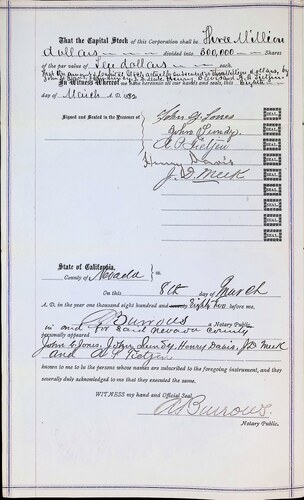 That the Capital Stock of this Corporation shall be Three Million
dollars divided into 300,000 Shares
of the par value of Ten dollars each.
In Witness Whereof we have hereunto set our hands and seals, this Eighth
day of March A.D. 1882
Signed and Sealed in the Presence of
John G. Jones SEAL
John Lundy SEAL
A. P. Tietjen SEAL
Henry Davis SEAL
J. D. Meek SEAL
SEAL
SEAL
SEAL
SEAL
SEAL
State of California,
County of Nevada ss.
On this 8th day of March
A. D. in the year one thousand eight hundred and Eighty two before me,
A Burrows Notary Public
in and for said Nevada County
personally appeared
John G. Jones, John Lundy, Henry Davis, J D Meek
and A P Tietjen
known to me to be the persons whose names are subscribed to the foregoing instrument, and they
severally duly acknowledged to me that they executed the same.
WITNESS my hand and Official Seal,
A Burrows.
Notary Public.